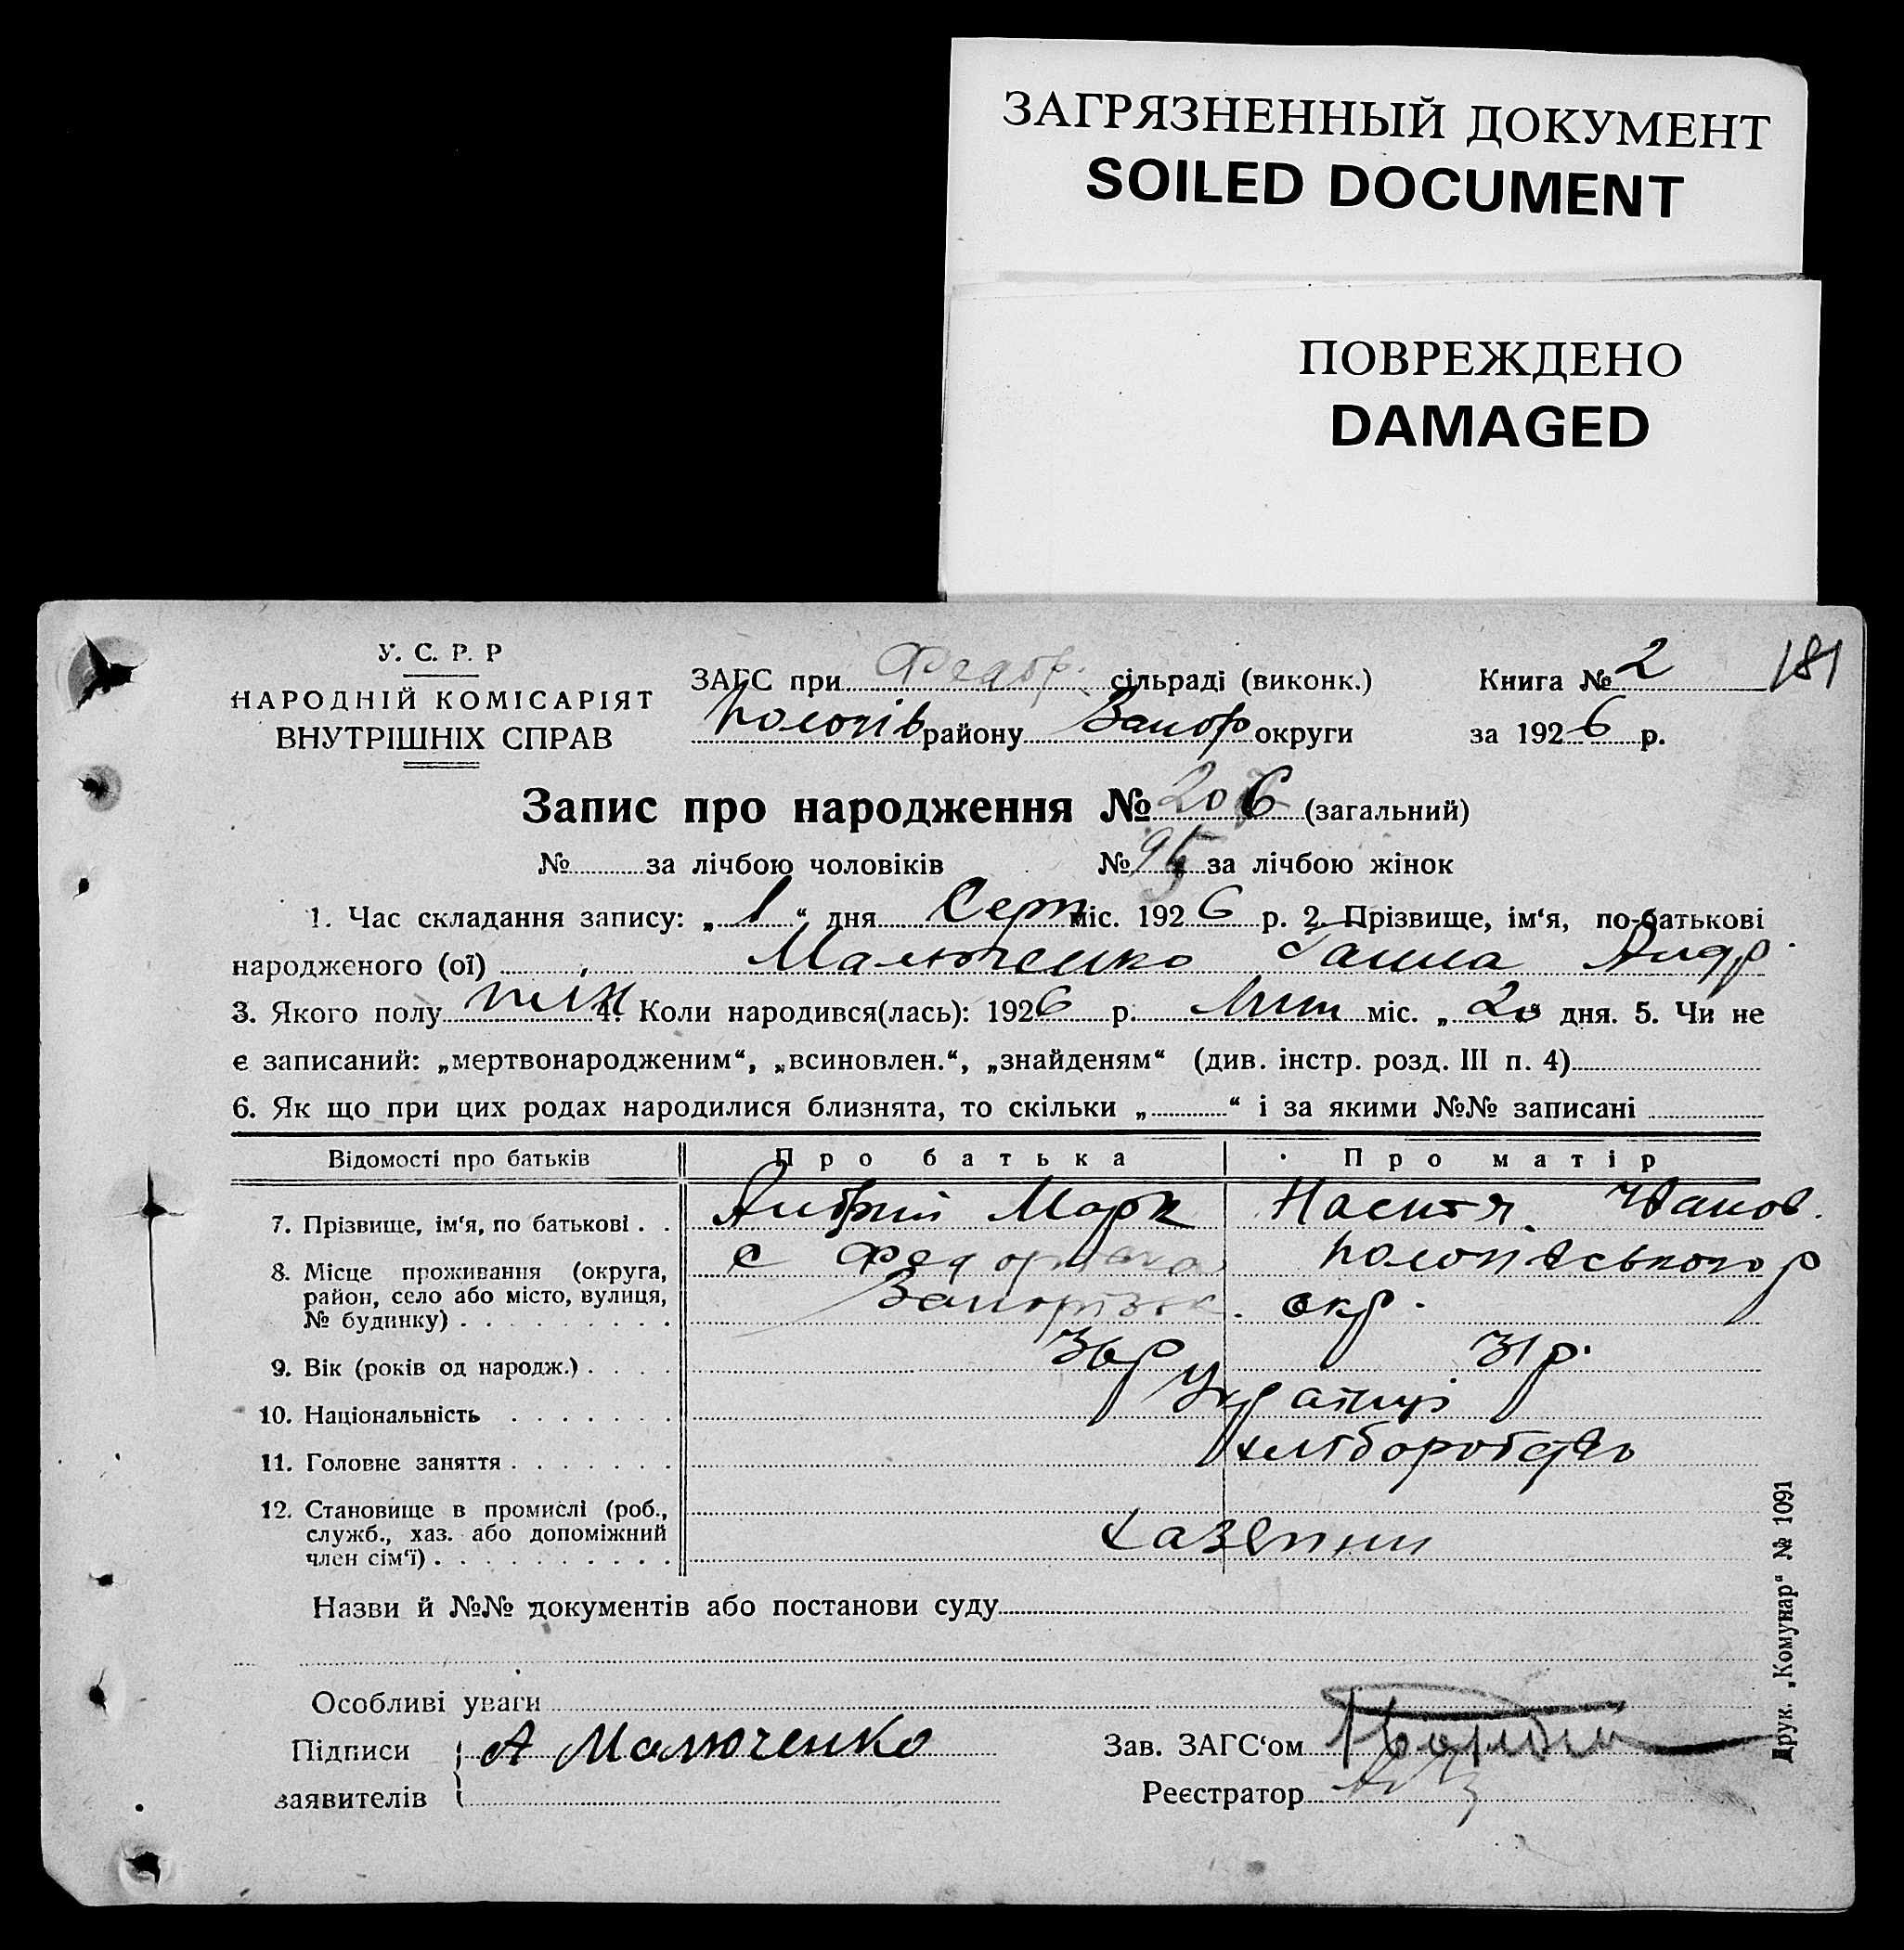 ЗАГРЯЗНЕННЫЙ ДОКУМЕНТ
SOILED DOCUMENT
ПОВРЕЖДЕНО
DAMAGED
У. С. Р. Р
НАРОДНІЙ КОМІСАРІЯТ
ВНУТРІШНІХ СПРАВ
ЗАГС при Федор. сільраді (виконк.)
Пологів району Запор округи
Книга № 2 181
за 1926 р.
Запис про народження № 206 (загальний)
№ за лічбою чоловіків № 95 за лічбою жінок
1. Час складання запису: „1“ дня Серп міс. 1926 р. 2. Прізвище, ім‘я, по-батькові
народженого (ої) Малюченко Ганна Андр.
3. Якого полу жін 4. Коли народився(лась): 1926 р. Лип міс. „ дня. 5. Чи не
є записаний: „мертвонародженим“, „всиновлен.“, „знайденям“ (див. інстр. розд. III п. 4)
6. Як що при цих родах народилися близнята, то скільки „ “ і за якими №№ записані
Відомості про батьків Про батька Про матір
7. Прізвище, ім‘я, по батькові . . Андрій Марк Настя Іванов.
8. Місце проживання (округа, район, село або місто, вулиця, № будинку) с Федорівка Пологівського р
Запорізьк. окр.
9. Вік (років од народж.) 36р 31р.
10. Національність Українці
11. Головне заняття хліборобств
12. Становище в промислі (роб., служб., хаз. або допоміжний член сім‘ї)
Назви й №№ документів або постанови суду
Особливі уваги
Підписи заявителів А Малюченко
Зав. ЗАГС‘ом
Реєстратор
Друк. „Комунар“ № 1091